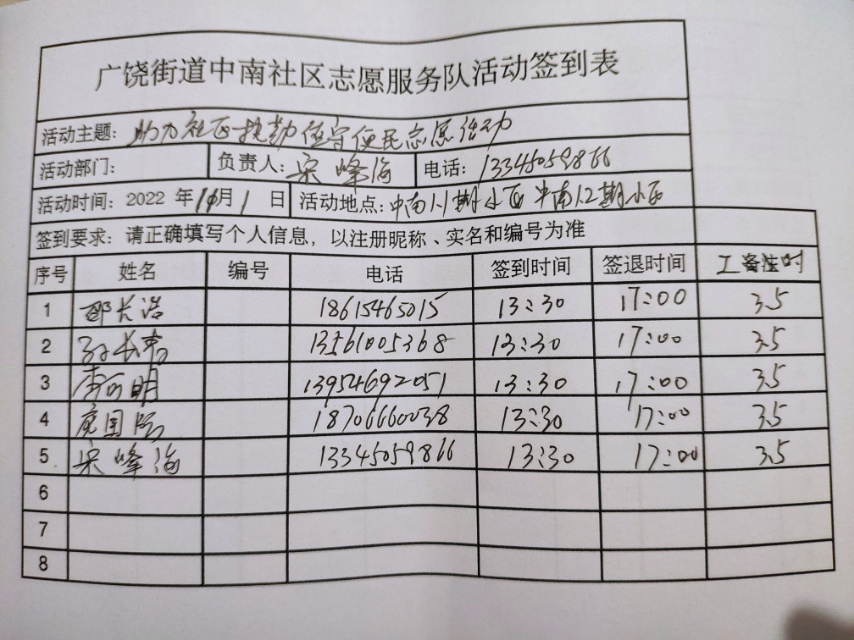 广饶街道中南社区志愿服务队活动签到表
活动主题：助力社区执勤值守便民志愿活动
活动部门： 负责人：宋峰海 电话：13345059866
活动时间：2022 年 10月 1 日 活动地点：中南1.1期小区 中南1.2期小区
签到要求：请正确填写个人信息，以注册昵称、实名和编号为准
序号 姓名 编号 电话 签到时间 签退时间 工备注时
1 邵长浩 18615465015 13:30 17:00 3.5
2 13561005368 13:30 17:00 3.5
3 李 明 13954692051 13:30 17:00 3.5
4 国 18706660038 13:30 17:00 3.5
5 宋峰海 13345059866 13:30 17:00 3.5
6
7
8